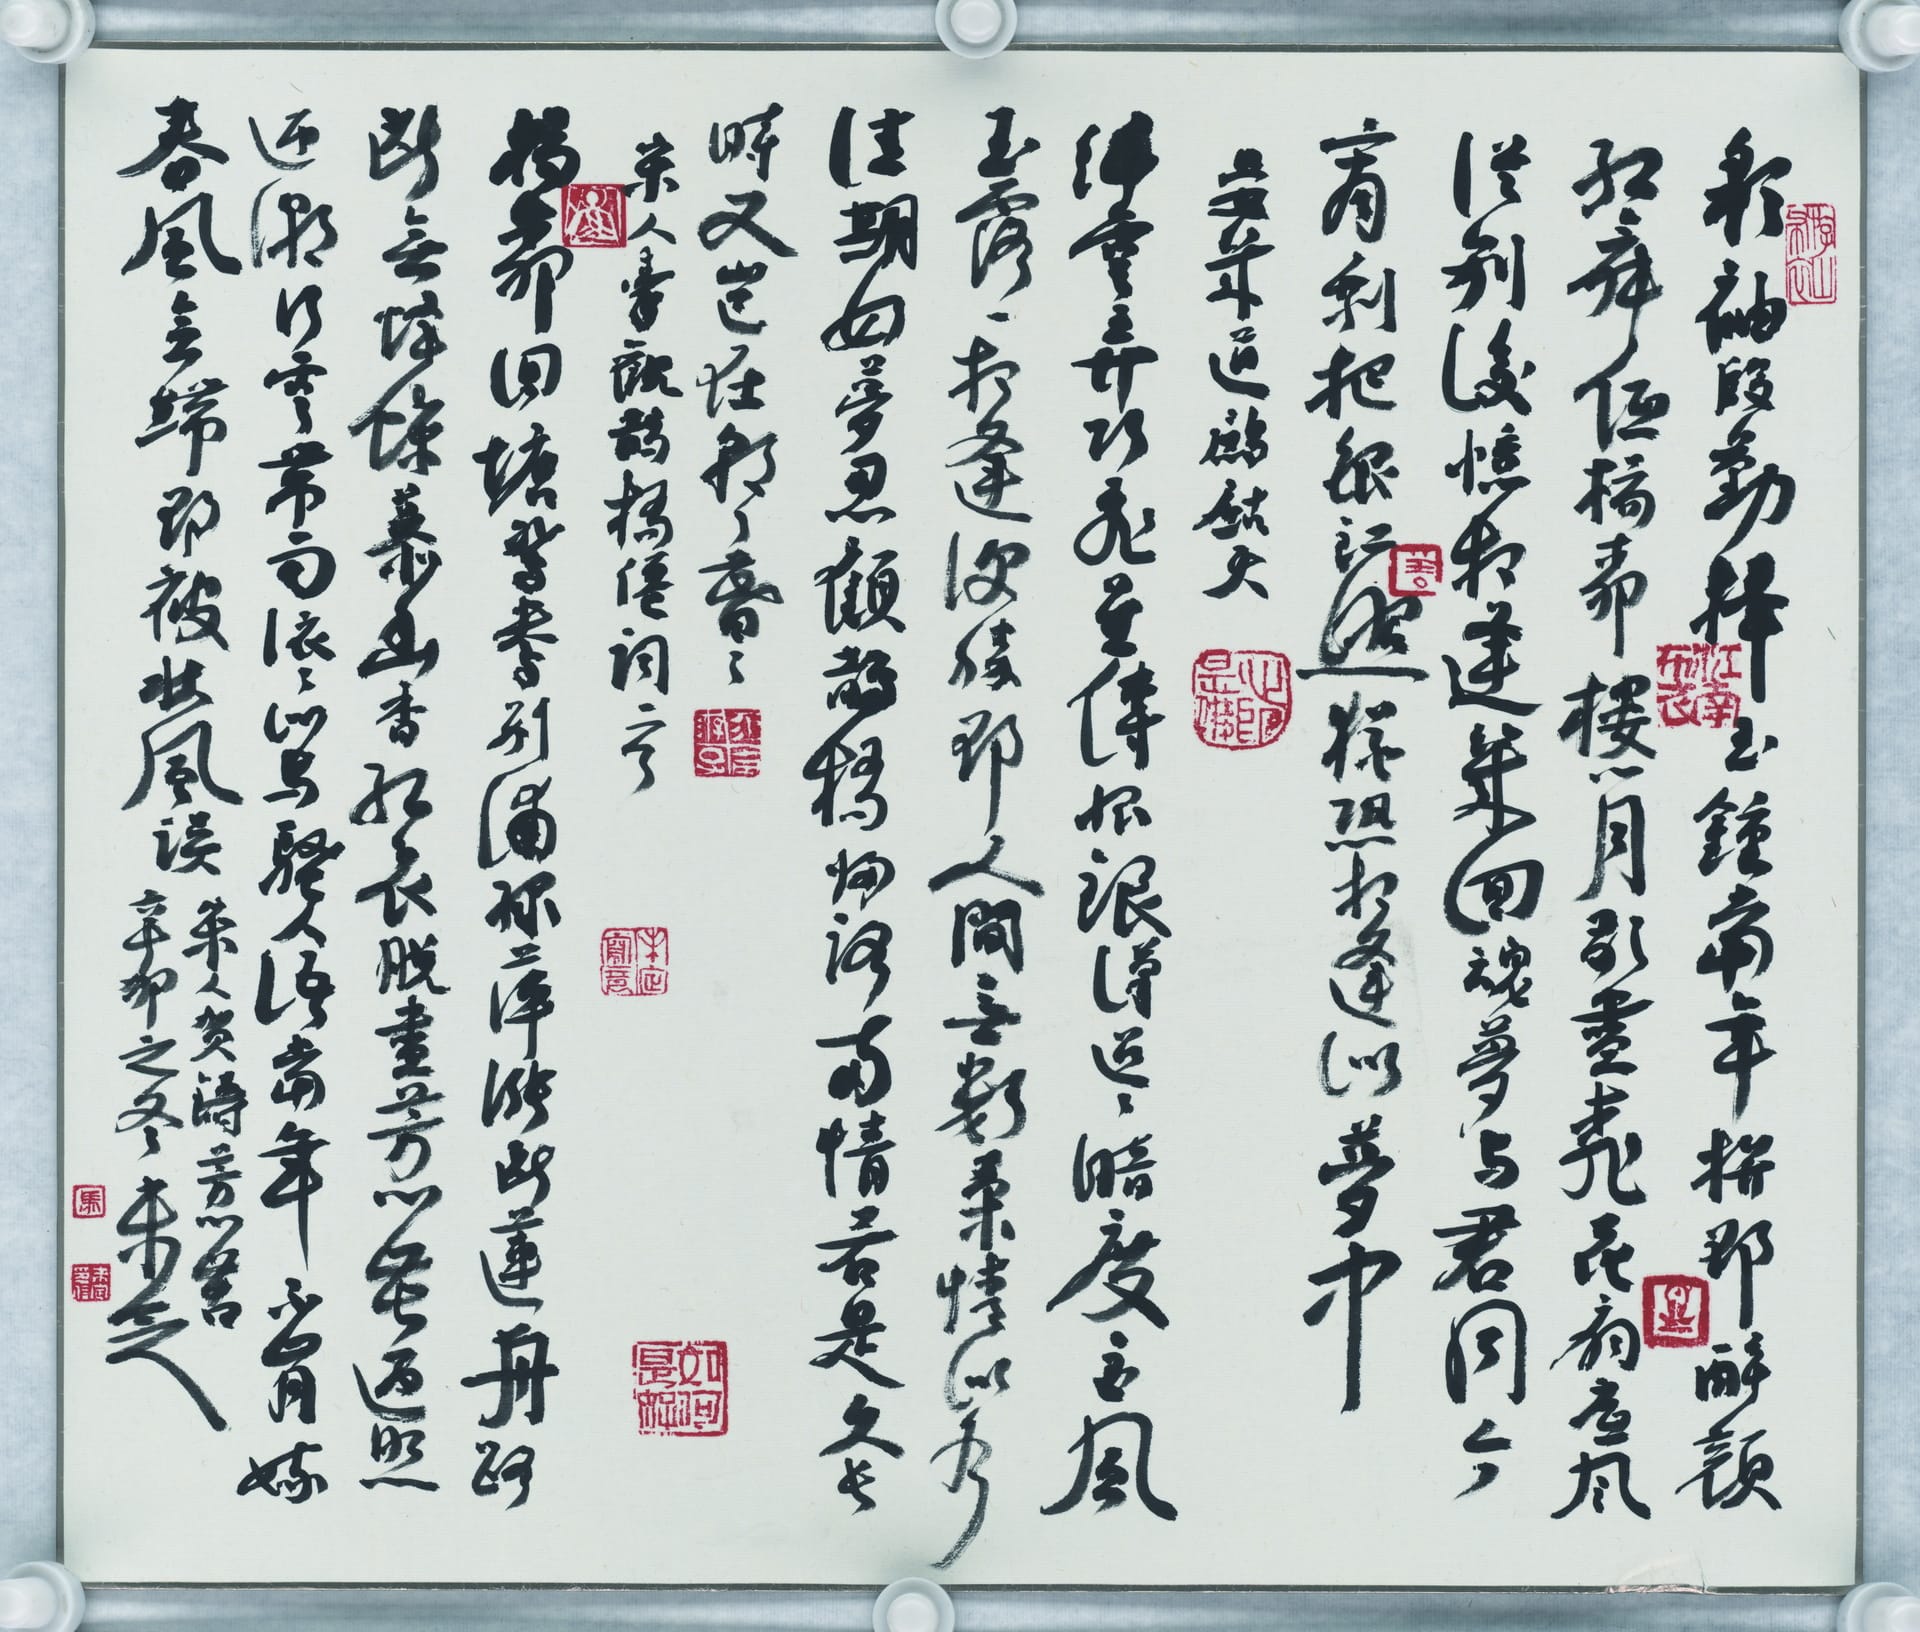 彩袖殷勤捧玉鍾當年拚却醉顏
紅舞低楊柳樓心月歌盡桃花扇底風
從別後憶相逢幾回魂夢与君同今
宵剩把銀釭照猶恐相逢似夢中
晏幾道鷓鴣天
纤雲弄巧飛星傳恨銀漢迢迢暗度金風
玉露一相逢便勝却人間無數柔情似水
佳期如夢忍顧鵲橋歸路兩情若是久長
時又豈在朝朝暮暮
宋人秦觀鵲橋仙詞之
楊柳回塘鴛鴦別浦綠萍漲斷蓮舟路
斷無蜂蝶慕幽香紅衣脱盡芳心苦返照
迎潮行雲帶雨依依似與騷人語當年不肯嫁
春風無端却被秋風誤
宋人賀鑄芳心苦
辛卯之冬
江南布衣
心即是佛
如何是起